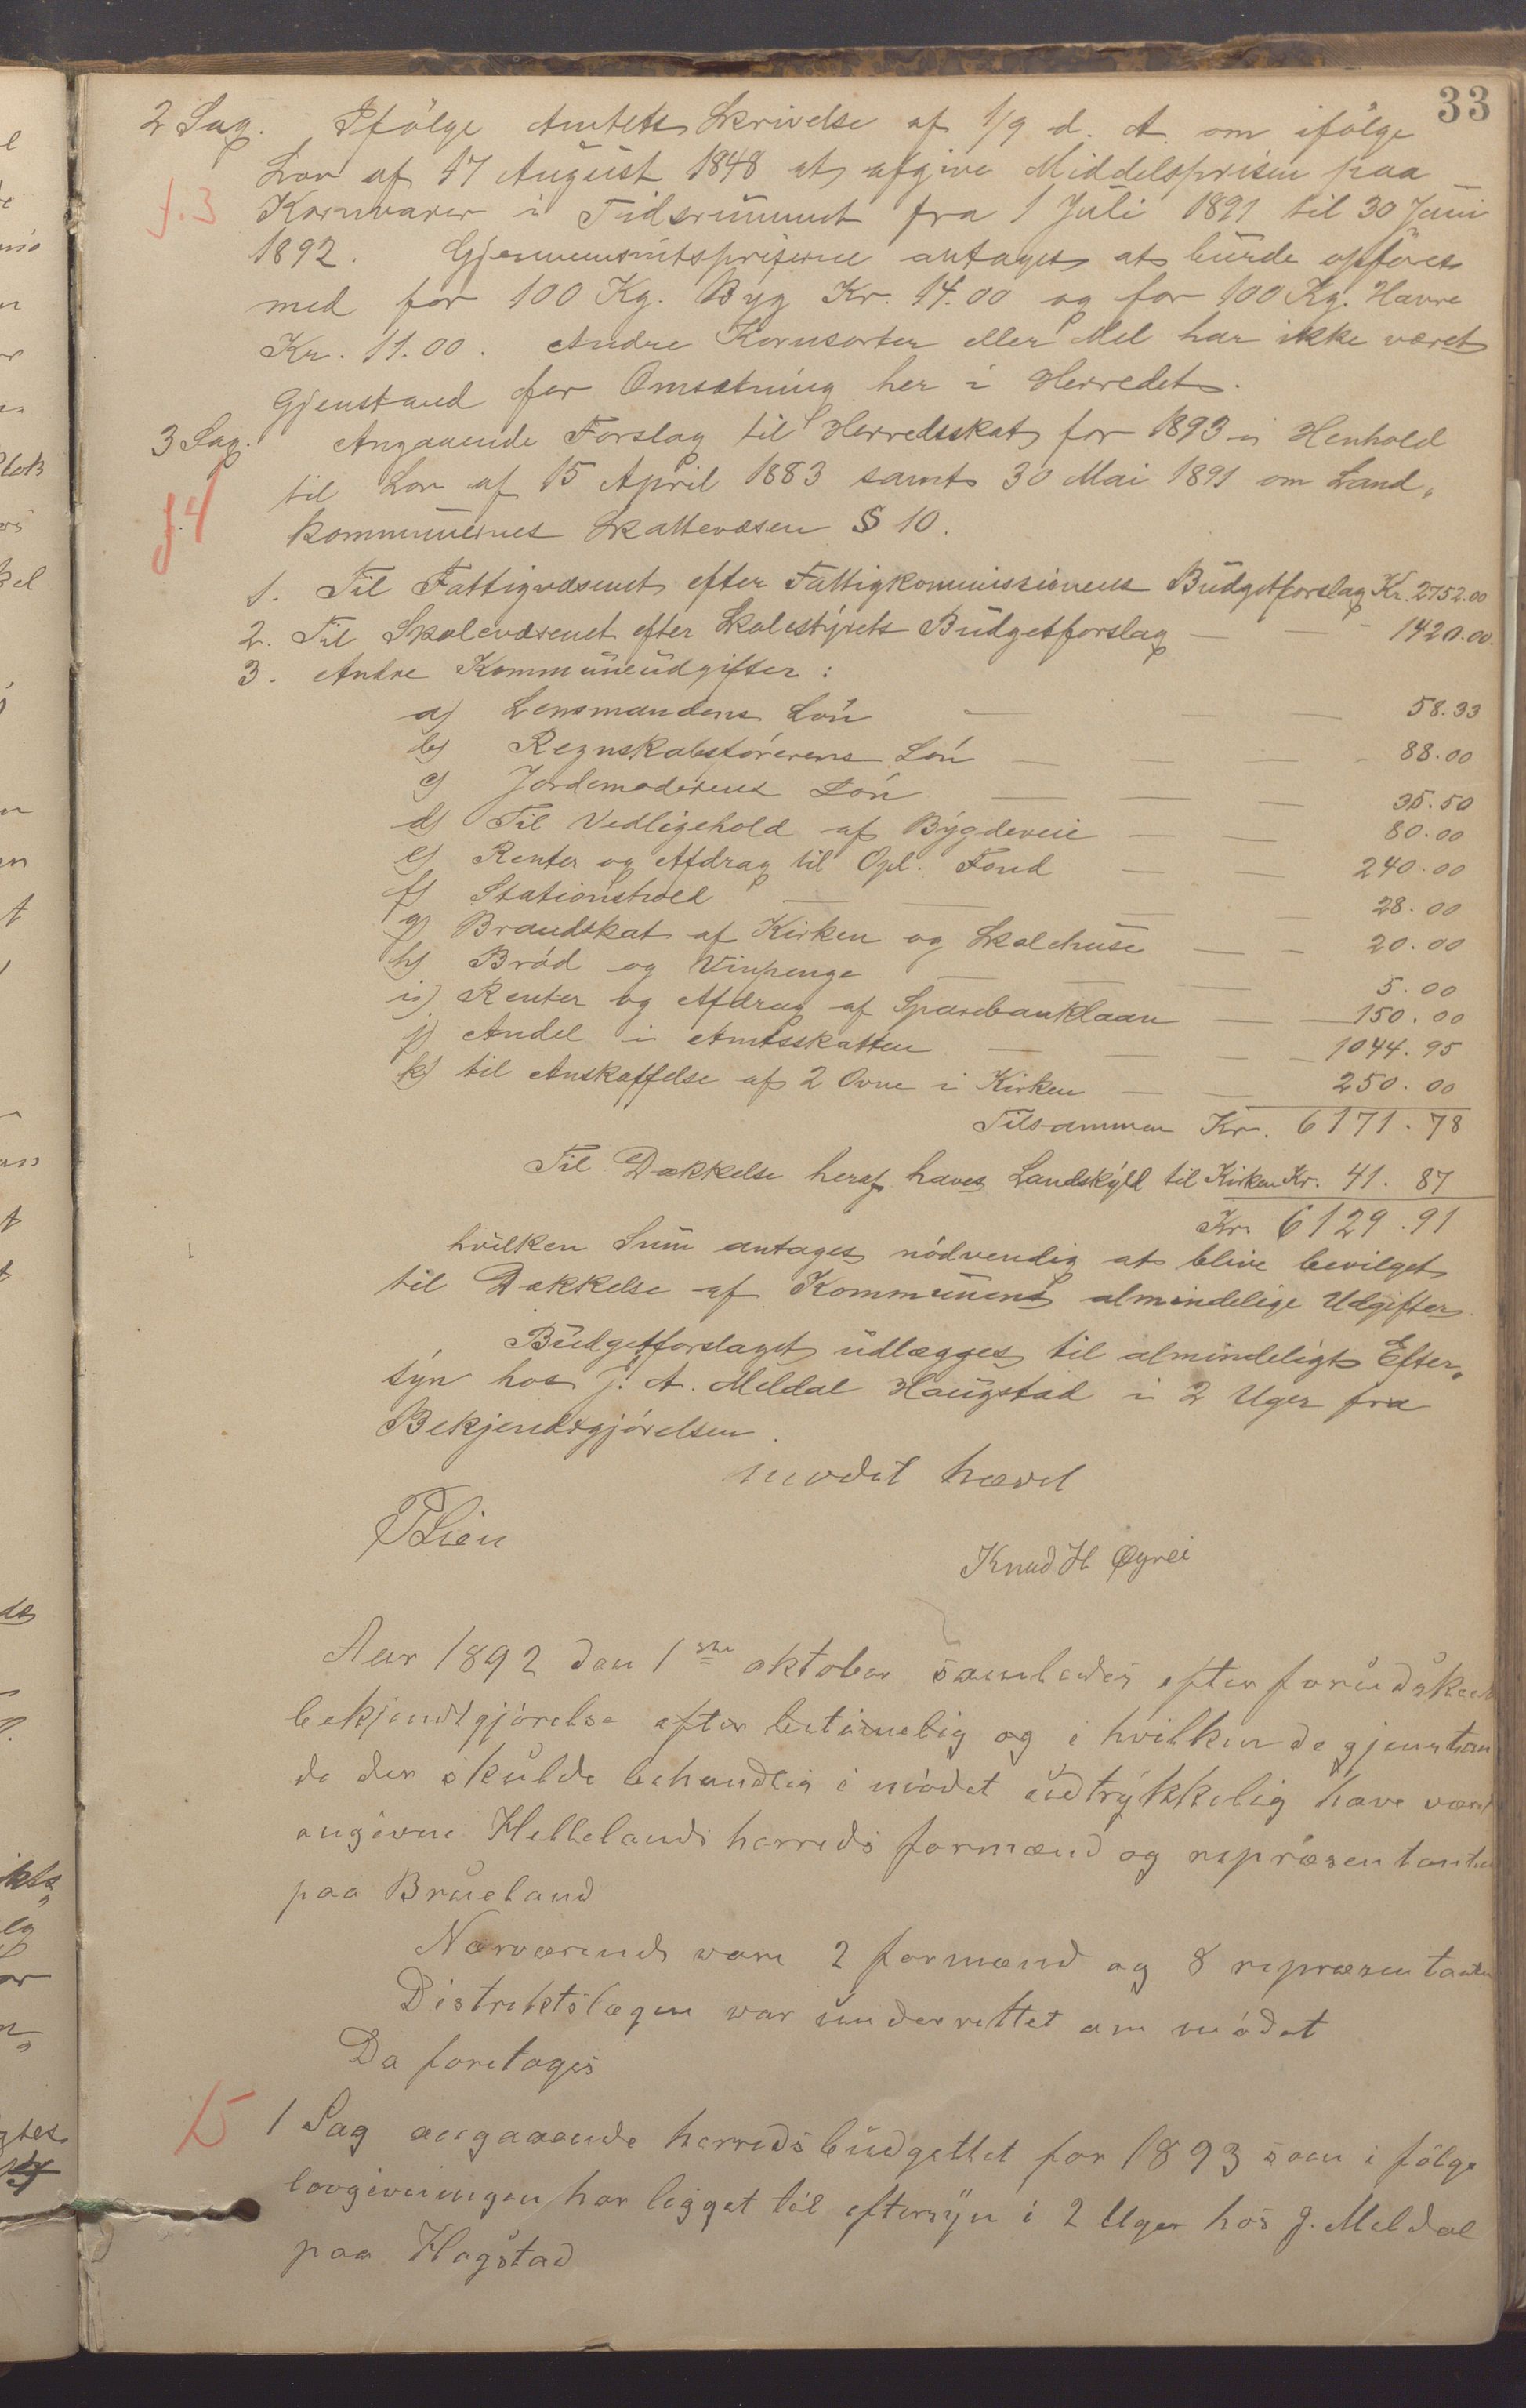 33
2 Sag. Ifölge Amtets Skrivelse af 1/9 d. A. om ifölge
Lov af 17 August 1848 at afgive Middelsprisen paa
f. 3 Kornvarer i Tidsrummet fra 1 Juli 1891 til 30 Juni
1892. Gjennemsnitspriserne antages at burde opföres
med for 100 Kg. Byg Kr. 14.00 og for 100 Kg. Havre
Kr. 11.00. Andre Kornsorter eller Mel har ikke været
Gjenstand for Omsætning her i Herredet.
3 Sag. Angaaende Forslag til Herredsskat for 1893 i Henhold
f. 4 til Lov af 15 April 1883 samt 30 Mai 1891 om Land„
kommunernes Skattevæsen § 10.
1. Til Fattigvæsenet efter Fattigkommissionens Budgetforslag Kr. 2752.00
2. Til Skolevæsenet efter Skolestyrets Budgetforslag — — - 1420.00.
3. Andre Kommuneudgifter:
a) Lensmandens Lön — — — 58.33
b) Regnskabsförerens Lön — — — - 88.00
c) Jordemoderens Lön — — — 35.50
d) Til Vedligehold af Bygdeveie — — 80.00
e) Renter og Afdrag til Opl. Fond — — 240.00
f) Stationshold — — — — 28.00
g) Brandskat af Kirken og Skolehuse — — 20.00
h) Bröd og Vinpenge — — — 5.00
i) Renter og Afdrag af Sparebanklaan — — 150.00
j) Andel i Amtsskatten — — — — 1044.95
k) til Anskaffelse af 2 Ovne i Kirken — — 250.00
Tilsammen Kr. 6171.78
Til Dækkelse heraf haves Landskyld til Kirken Kr. 41.87
Kr. 6129.91
hvilken Sum antages nödvendig at blive bevilget
til Dækkelse af Kommunens almindelige Udgifter.
Budgetforslaget udlægges til almindeligt Efter„
syn hos J. A. Meldal Haugstad i 2 Uger fra
Bekjendtgjörelsen.
mödet hævet
Lien
Knud H Øgrei
Aar 1892 den 1ste oktober samledes efter forudskeet
bekjendtgjörelse efter betimelig og i hvilken de gjenstan
de der skulde behandles i mödet udtrykkelig have været
angivne Hellelands herreds formænd og repræsentanter
paa Brueland
Nærværende vare 2 formænd og 8 repræsentanter
Distriktslægen var underrettet om mödet
Da foretoges
5 1 Sag angaaende herredsbudgettet for 1893 som i fölge
lovgivningen har ligget til eftersyn i 2 Uger hos J. Meldal
paa Hagstad